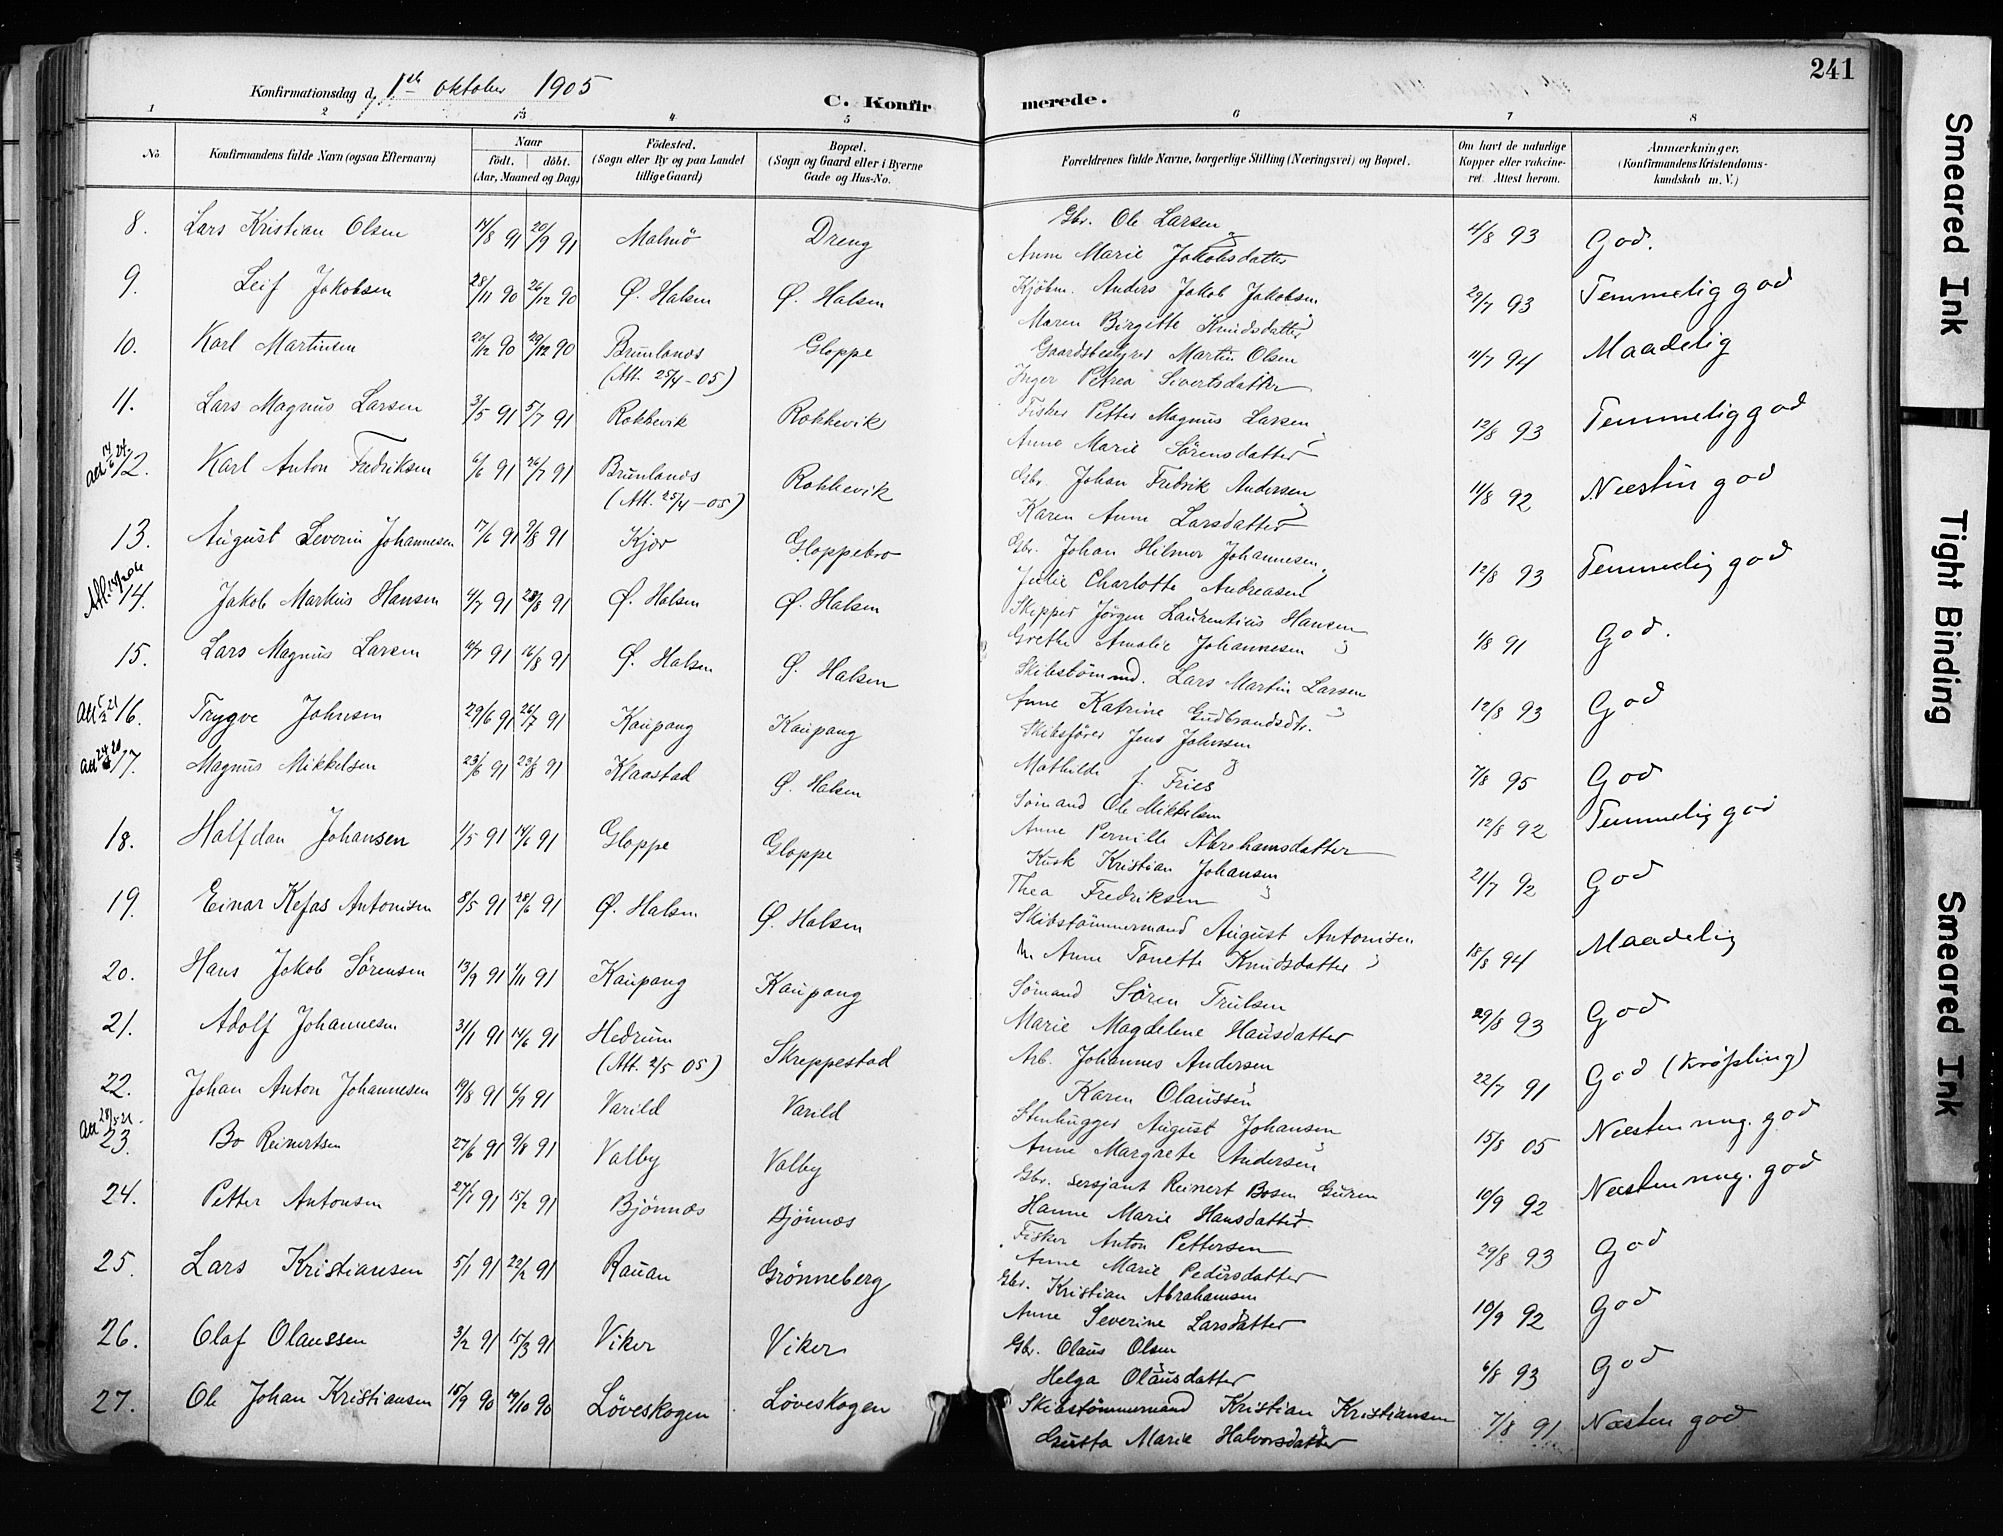 241
Konfirmationsdag d. 1ste oktober 1905
C. Konfirmerede.
1 2 3 4 5 6 7 8
No. Konfirmandens fulde Navn (ogsaa Efternavn) Naar födt. döbt. (Aar, Maaned og Dag) Födested. (Sogn eller By og paa Landet tillige Gaard) Bopæl. (Sogn og Gaard eller i Byerne Gade og Hus-No. Forældrenes fulde Navne, borgerlige Stilling (Næringsvei) og Bopæl. Om havt de naturlige Kopper eller vakcineret. Attest herom. Anmærkninger. (Konfirmandens Kristendomskundskab m. V.)
8. Lars Kristian Olsen 14/8 91 20/9 91 Malmö Dreng Gbr. Ole Larsen 4/8 93 God.
Anne Marie Jakobsdatter
9. Leif Jakobsen 28/11 90 26/12 90 Ø. Halsen Ø. Halsen Kjöbm. Anders Jakob Jakobsen 29/7 93 Temmelig god
Maren Birgette Knudsdatter
10. Karl Martinsen 90 29/12 90 Brunlanæs Gloppe Gaardsbestyrer Martin Olsen 11/7 94 Maadelig
(Att. 25/4-05) Inger Petrea Sivertsdatter
11. Lars Magnus Larsen 3/5 91 5/7 91 Rakkevik Rakkevik Fisker Petter Magnus Larsen 12/8 93 Temmelig god
Anne Marie Sörensdatter
12. Karl Anton Fredriksen 6/6 91 26/7 91 Brunlanæs Rakkevik Gbr. Johan Fredrik Andersen 11/8 92 Næsten god
(Att. 25/4-05) Karen Anne Larsdatter
13. August Severin Johannesen 17/6 91 9/8 91 Kjær Gloppebro Gbr. Johan Hilmer Johannesen 12/8 93 Temmelig god
Julie Charlotte Andreasen
14. Jakob Markus Hansen 4/7 91 91 Ø. Halsen Ø. Halsen Skipper Jörgen Laurentius Hansen 1/8 91 God.
Grethe Amalie Johannesen
15. Lars Magnus Larsen 91 16/8 91 Ø. Halsen Ø. Halsen Skibstömmd. Lars Martin Larsen 12/8 93 God
Anne Katrine Gudbrandsdtr.
16. Trygve Johnsen 29/6 91 26/7 91 Kaupang Kaupang Skibsförer Jens Johnsen 7/8 95 God
Mathilde f. Fries
17. Magnus Mikkelsen 23/6 91 23/8 91 Klaastad Ø. Halsen Sömand Ole Mikkelsen 12/8 92 Temmelig god
Anne Pernille Abrahamsdatter
18. Halfdan Johansen 1/5 91 14/6 91 Gloppe Gloppe Kusk Kristian Johansen 21/7 92 God
Thea Fredriksen
19. Einar Kefas Antonisen 8/5 91 28/6 91 Ø. Halsen Ø. Halsen Skibstömmermand August Antonisen 18/8 94 Maadelig
Anne Tonette Knudsdatter
20. Hans Jakob Sörensen 13/9 91 1/11 91 Kaupang Kaupang Sömand Sören Trulsen 29/8 93 God
Marie Magdelene Hansdatter
21. Adolf Johannesen 31/1 91 14/6 91 Hedrum Skreppestad Arb. Johannes Andersen 22/7 91 God (Krøpling)
(Att. 2/5 05) Karen Olaussen
22. Johan Anton Johannesen 19/8 91 6/9 91 Varild Varild Stenhugger August Johansen 15/8 05 Næsten mug. god
Anne Margrete Andersen
att 28/5 21.
23. Bo Reinertsen 27/6 91 9/8 91 Valby Valby Gbr. sersjant Reinert Bosen Guren 10/9 92 Næsten mug. god
Hanne Marie Hansdatter
24. Petter Antonsen 27/1 91 15/2 91 Bjönnæs Bjönnæs Fisker Anton Pettersen 29/8 93 God
Anne Marie Pedersdatter
25. Lars Kristiansen 5/1 91 22/2 91 Rauan Grönneberg Gbr. Kristian Abrahamsen 10/9 92 God
Anne Severine Larsdatter
26. Olaf Olaussen 3/2 91 15/3 91 Viker Viker Gbr. Olaus Olsen 6/8 93 God
Helga Olausdatter
27. Ole Johan Kristiansen 18/9 90 19/10 90 Löveskogen Löveskogen Skibstömmermand Kristian Kristiansen 7/8 91 Næsten god
Gusta Marie Halvorsdatter
Smeared Ink
Tight Binding
Smeared Ink